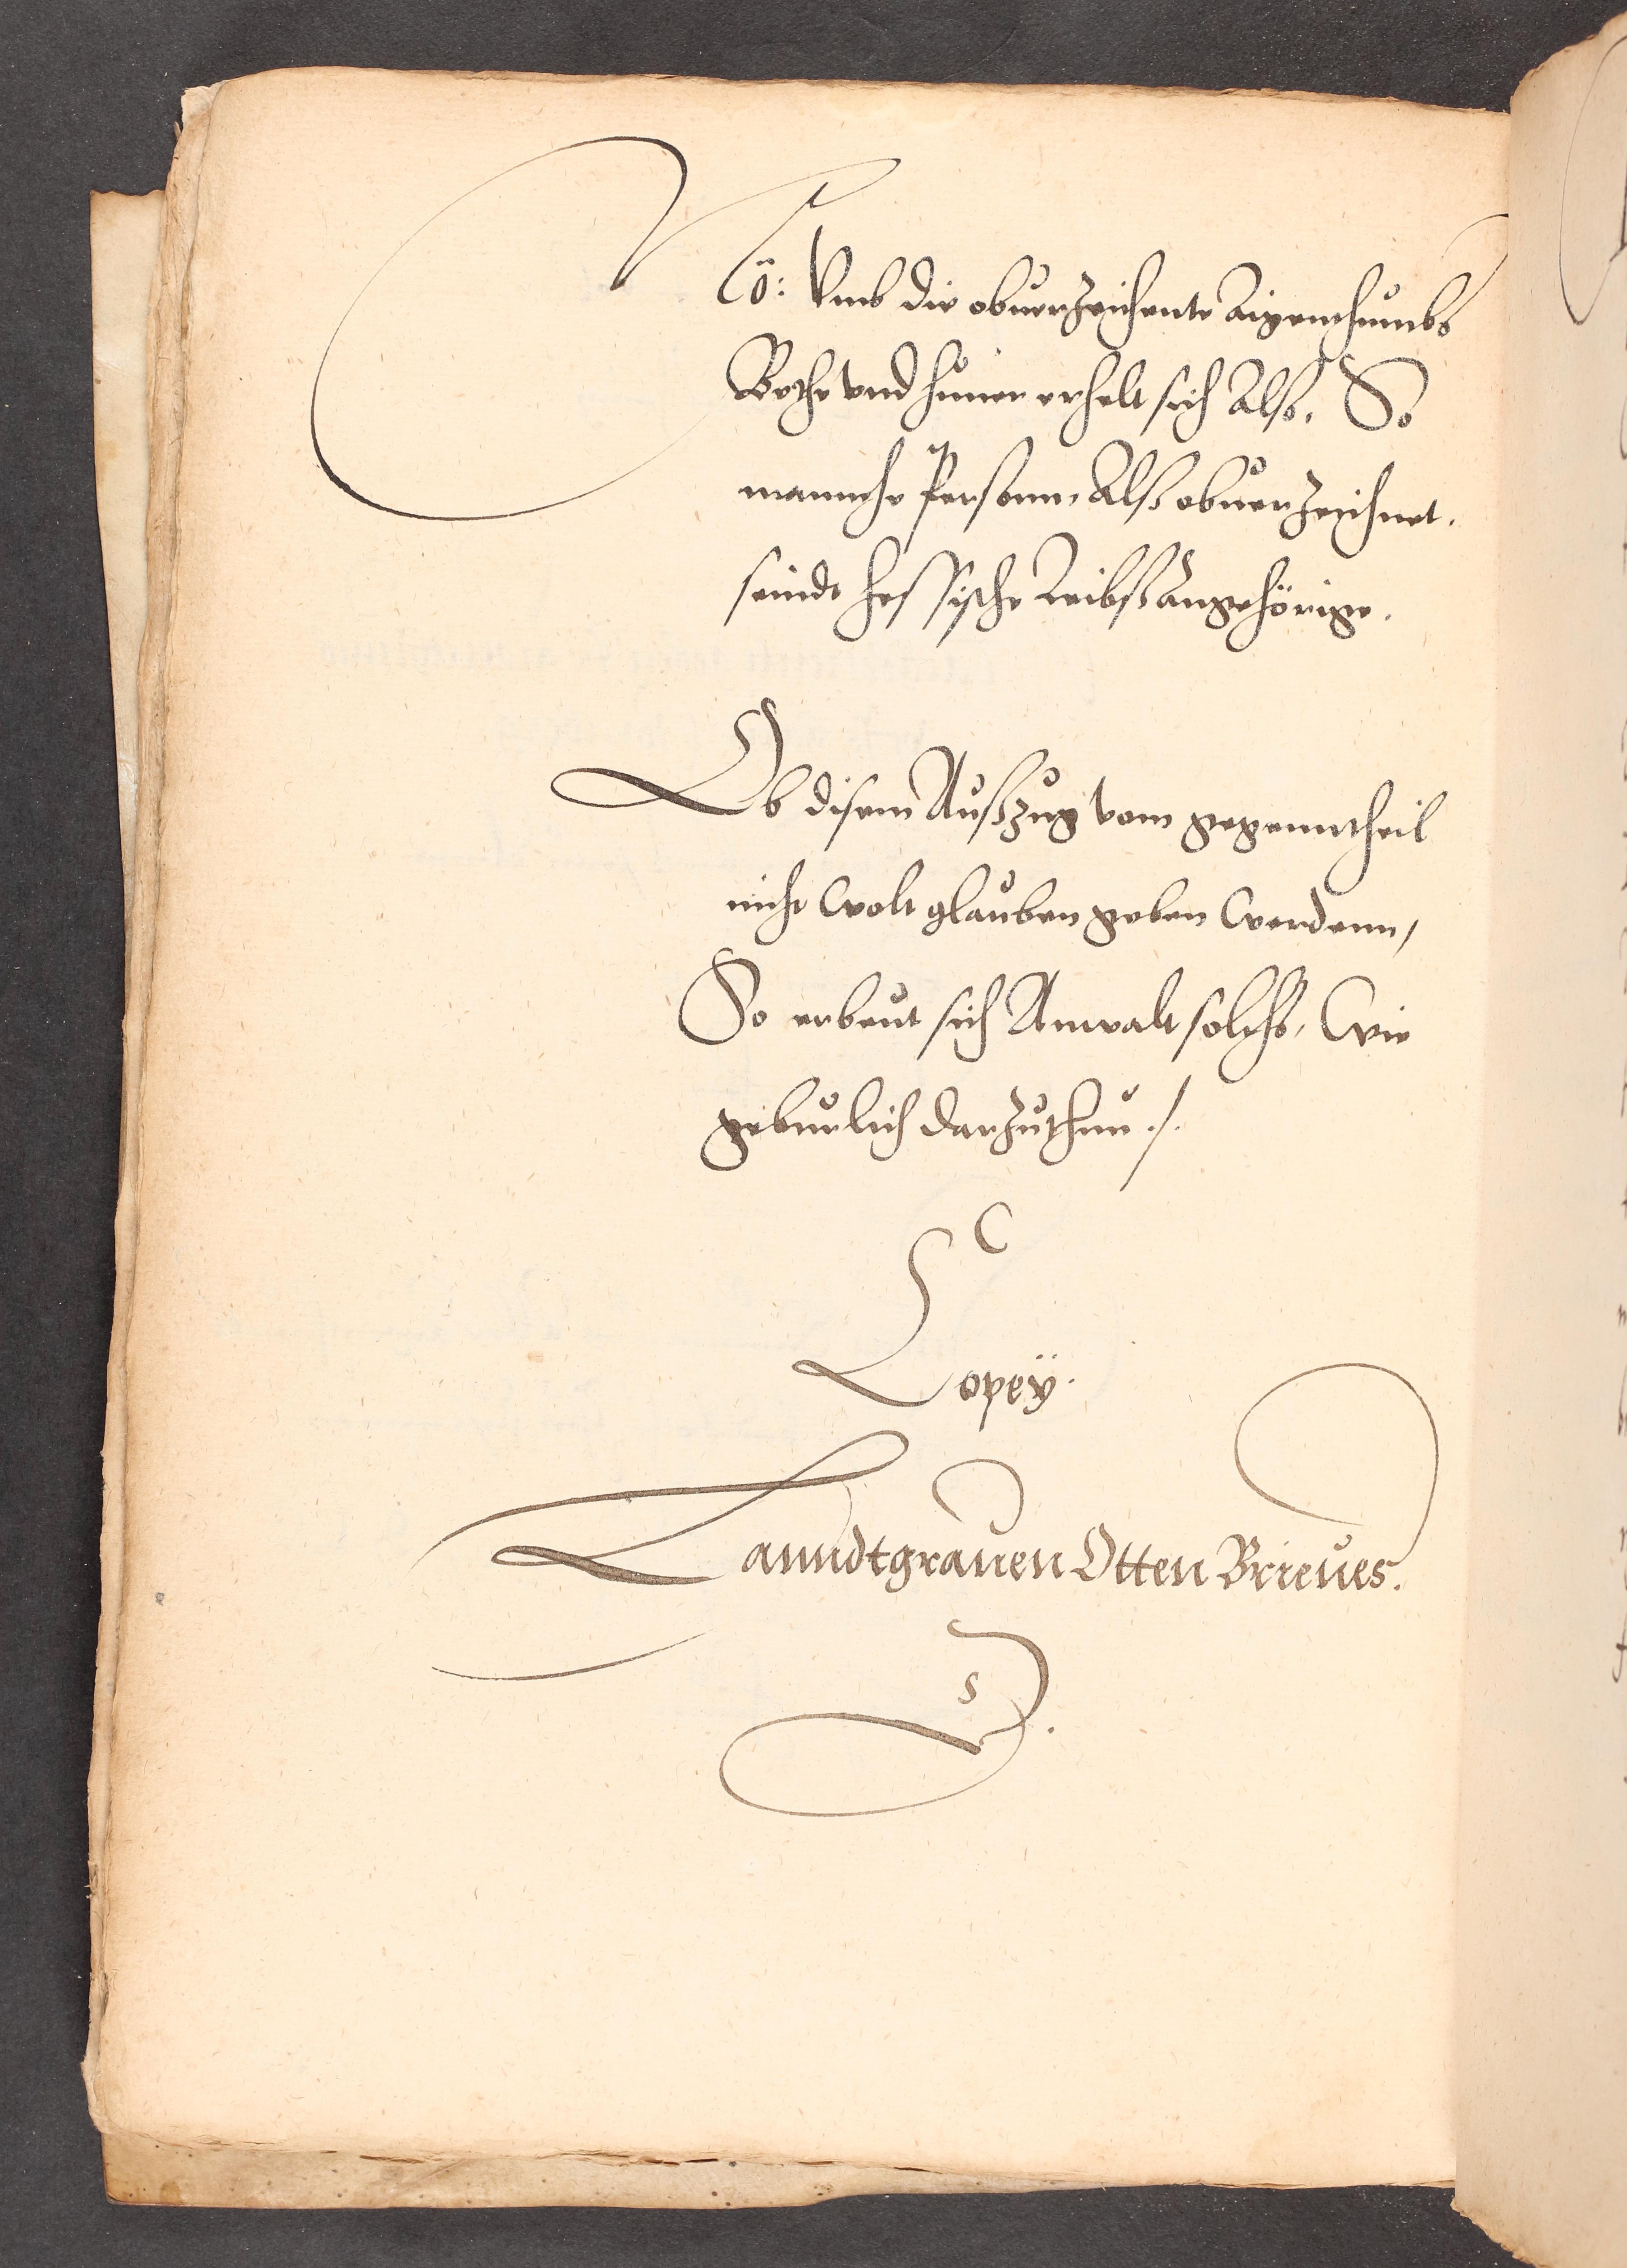 No: Vmb die obuerzeichente Aigenthumbs
Bethe vnd huner erhelt sich Also. So
mannche Personn, Alß obuerzeichnet.
seindt hessische Leibß Angehörige.
Ob disem Außzug vom gegenntheil
nicht wolt glauben geben werdenn,
So erbeut sich Anwalt solchs, Wie
geburlich darzuthun ./.
Copeÿ.
Lanndtgrauen Otten Brieues.